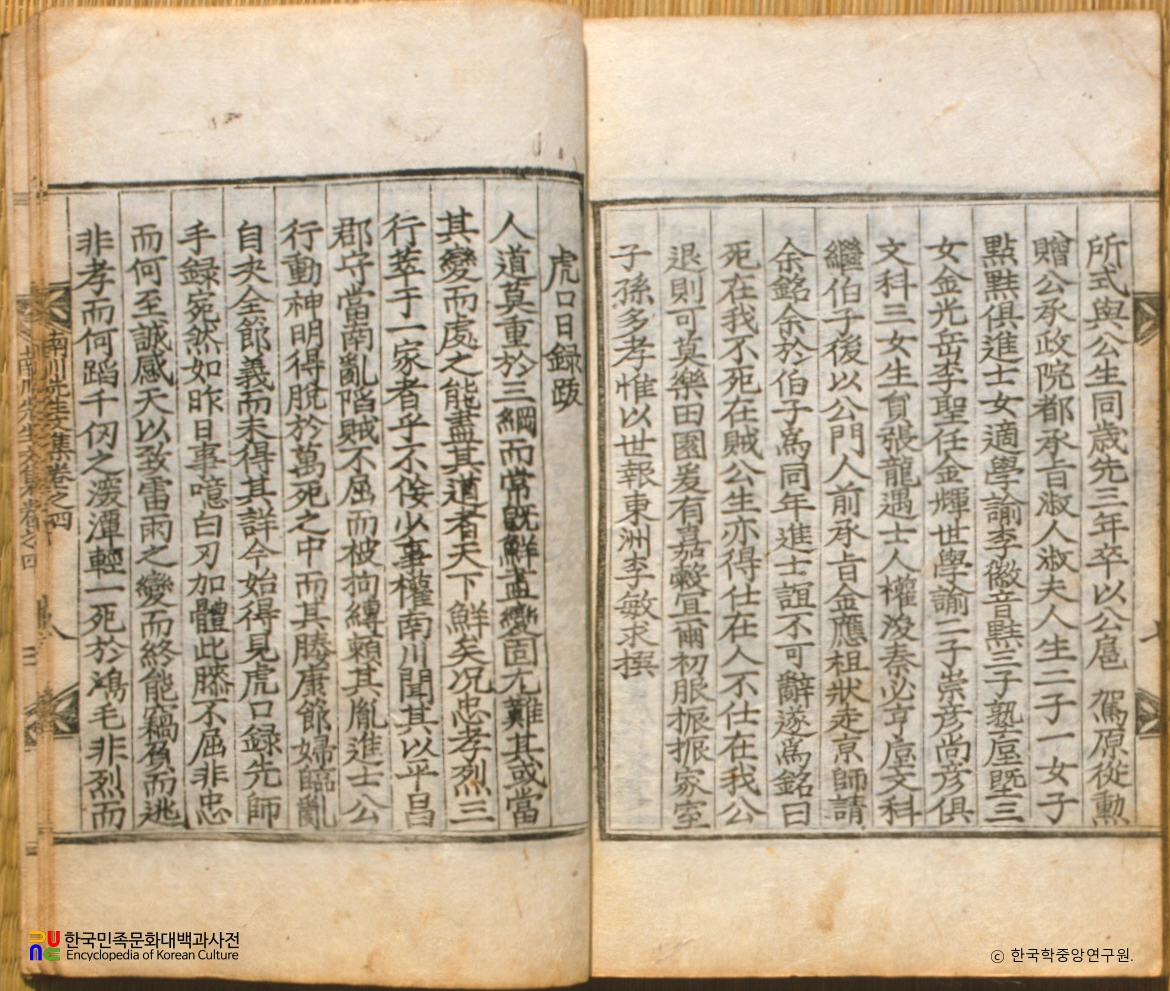 所式與公生同歲先三年卒以公扈 駕原從勳
贈公承政院都承旨淑人淑夫人生二子一女子
點㸃俱進士女適學諭李徽音㸃三子塾垕墍三
女金光岳李聖任金輝世學諭二子崇彦尚彦俱
文科三女生員張龍遇士人權濬秦必亨垕文科
繼伯子後以公門人前承旨金應祖狀走京師請
余銘余於伯子爲同年進士誼不可辭遂爲銘曰
死在我不死在賊公生亦得仕在人不仕在我公
退則可莫樂田園爰有嘉遯宜爾初服振振家室
子孫多孝惟以世報東洲李敏求撰
虎口日録跋
人道莫重於三綱而常旣鮮盡變固尤難其或當
其變而處之能盡其道者天下鮮矣况忠孝烈三
行萃于一家者乎不侫少事權南川聞其以平昌
郡守當南亂陷賊不屈而被拘縛賴其胤進士公
行動神明得脫於萬死之中而其勝康節婦臨亂
自夬全節義而未得其詳今始得見虎口録先師
手録宛然如昨日事噫白刃加體此膝不屈非忠
而何至誠感天以致雷雨之變而終能竊負而逃
非孝而何蹈千仞之濴潭輕一死於鴻毛非烈而
南川先生文集卷之四
八
한국민족문화대백과사전
Encyclopedia of Korean Culture
© 한국학중앙연구원.